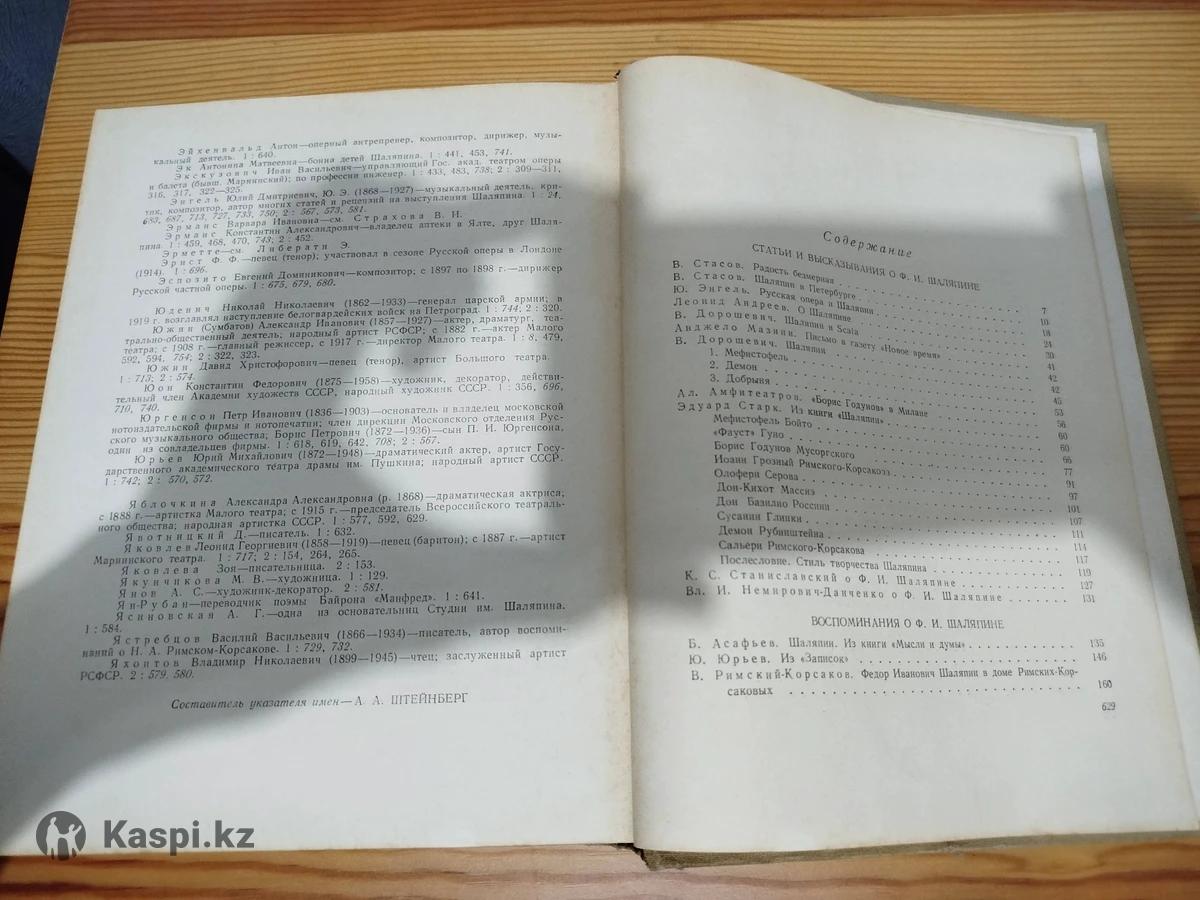 Эйхенвальд Антон—оперный антрепренер, композитор, дирижер, музы-
кальный деятель. 1 : 640.
Эк Антонина Матвеевна—бонна детей Шаляпина. 1 : 441, 453, 741.
Экскузович Иван Васильевич—управляющий Гос. акад. театром оперы
и балета (бывш. Мариинский); по профессии инженер. 1 : 433, 483, 738; 2 : 309—311,
316, 317, 322—325.
Энгель Юлий Дмитриевич, Ю. Э. (1868—1927)—музыкальный деятель, кри-
тик, композитор, автор многих статей и рецензий на выступления Шаляпина. 1 : 24,
683, 687, 713, 727, 733, 750; 2 : 567, 573, 581.
Эрманс Варвара Ивановна—см. Страхова В. И.
Эрманс Константин Александрович—владелец аптеки в Ялте, друг Шаля-
пина. 1 : 459, 468, 470, 743; 2 : 452.
Эрметте—см. Либерати Э.
Эрнст Ф. Ф.—певец (тенор); участвовал в сезоне Русской оперы в Лондоне
(1914). 1 : 696.
Эспозито Евгений Доминикович—композитор; с 1897 по 1898 г.—дирижер
Русской частной оперы. 1 : 675, 679, 680.
Юденич Николай Николаевич (1862—1933)—генерал царской армии; в
1919 г. возглавлял наступление белогвардейских войск на Петроград. 1 : 744; 2 : 320.
Южин (Сумбатов) Александр Иванович (1857—1927)—актер, драматург, теа-
трально-общественный деятель, народный артист РСФСР; с 1882 г.—актер Малого
театра; с 1908 г.—главный режиссер, с 1917 г.—директор Малого театра. 1 : 8, 479,
592, 594, 754; 2 : 322, 323.
Южин Давид Христофорович—певец (тенор), артист Большого театра.
1 : 713; 2 : 574.
Юон Константин Федорович (1875—1958)—художник, декоратор, действи-
тельный член Академии художеств СССР, народный художник СССР. 1 : 356, 696,
710, 740.
Юргенсон Петр Иванович (1836—1903)—основатель и владелец московской
нотоиздательской фирмы и нотопечатни; член дирекции Московского отделения Рус-
ского музыкального общества; Борис Петрович (1872—1936)—сын П. И. Юргенсона,
один из совладельцев фирмы. 1 : 618, 619, 642, 708; 2 : 567.
Юрьев Юрий Михайлович (1872—1948)—драматический актер, артист Госу-
дарственного академического театра драмы им. Пушкина; народный артист СССР.
1 : 742; 2 : 570, 572.
Яблочкина Александра Александровна (р. 1868)—драматическая актриса;
с 1888 г.—артистка Малого театра; с 1915 г.—председатель Всероссийского театраль-
ного общества; народная артистка СССР. 1 : 577, 592, 629.
Явотницкий Д.—писатель. 1 : 632.
Яковлев Леонид Георгиевич (1858—1919)—певец (баритон); с 1887 г.—артист
Мариинского театра. 1 : 717; 2 : 154, 264, 265.
Яковлева Зоя—писательница. 2 : 153.
Якунчикова М. В.—художница. 1 : 129.
Янов А. С.—художник-декоратор. 2 : 581.
Ян-Рубан—переводчик поэмы Байрона «Манфред». 1 : 641.
Ясиновская А. Г.—одна из основательниц Студии им. Шаляпина.
1 : 584.
Ястребцов Василий Васильевич (1866—1934)—писатель, автор воспоми-
наний о Н. А. Римском-Корсакове. 1 : 729, 732.
Яхонтов Владимир Николаевич (1899—1945)—чтец; заслуженный артист
РСФСР. 2 : 579, 580.
Составитель указателя имен—А. А. ШТЕЙНБЕРГ
Содержание
СТАТЬИ И ВЫСКАЗЫВАНИЯ О Ф. И. ШАЛЯПИНЕ
В. Стасов. Радость безмерная 7
В. Стасов. Шаляпин в Петербурге 10
Ю. Энгель. Русская опера и Шаляпин 18
Леонид Андреев. О Шаляпине 24
В. Дорошевич. Шаляпин в Scala 30
Анджело Мазини. Письмо в газету «Новое время» 41
В. Дорошевич. Шаляпин 42
1. Мефистофель 42
2. Демон 45
3. Добрыня 53
Ал. Амфитеатров. «Борис Годунов» в Милане 56
Эдуард Старк. Из книги «Шаляпин» 60
Мефистофель Бойто 60
«Фауст» Гуно 66
Борис Годунов Мусоргского 77
Иоанн Грозный Римского-Корсакова 91
Олоферн Серова 97
Дон-Кихот Массиэ 101
Дон Базилио Россини 107
Сусанин Глинки 111
Демон Рубинштейна 114
Сальери Римского-Корсакова 117
Послесловие. Стиль творчества Шаляпина 119
К. С. Станиславский о Ф. И. Шаляпине 127
Вл. И. Немирович-Данченко о Ф. И. Шаляпине 131
ВОСПОМИНАНИЯ О Ф. И. ШАЛЯПИНЕ
Б. Асафьев. Шаляпин. Из книги «Мысли и думы» 135
Ю. Юрьев. Из «Записок» 146
В. Римский-Корсаков. Федор Иванович Шаляпин в доме Римских-Кор-
саковых 160
629
Kaspi.kz